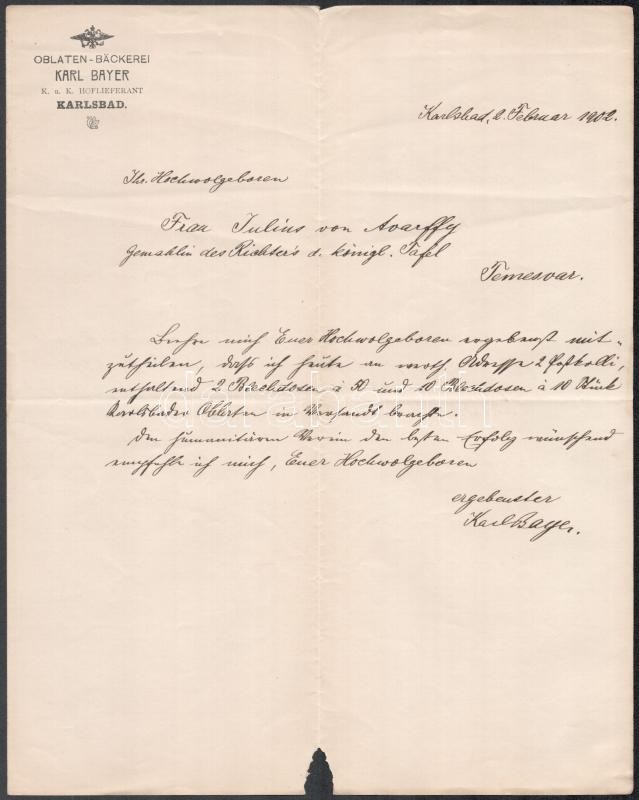 OBLATEN-BÄCKEREI
KARL BAYER
K. u. K. HOFLIEFERANT
KARLSBAD.
Karlsbad, 2. Februar 1902.
Ihr. Hochwolgeboren
Frau Julius von Avarffy
Gemahlin des Richter's d. königl. Tafel
Temesvar.
Beehre mich Euer Hochwolgeboren ergebenst mit-
zutheilen, dass ich heute an werth. Adresse 2 Postkolli,
enthaltend 2 Blechdosen à 50 und 10 Blechdosen à 10 Stück
Karlsbader Oblaten in Versandt brachte.
Dem humanitären Verein den besten Erfolg wünschend
empfehle ich mich, Euer Hochwolgeboren
ergebenster
Karl Bayer.
darabanth